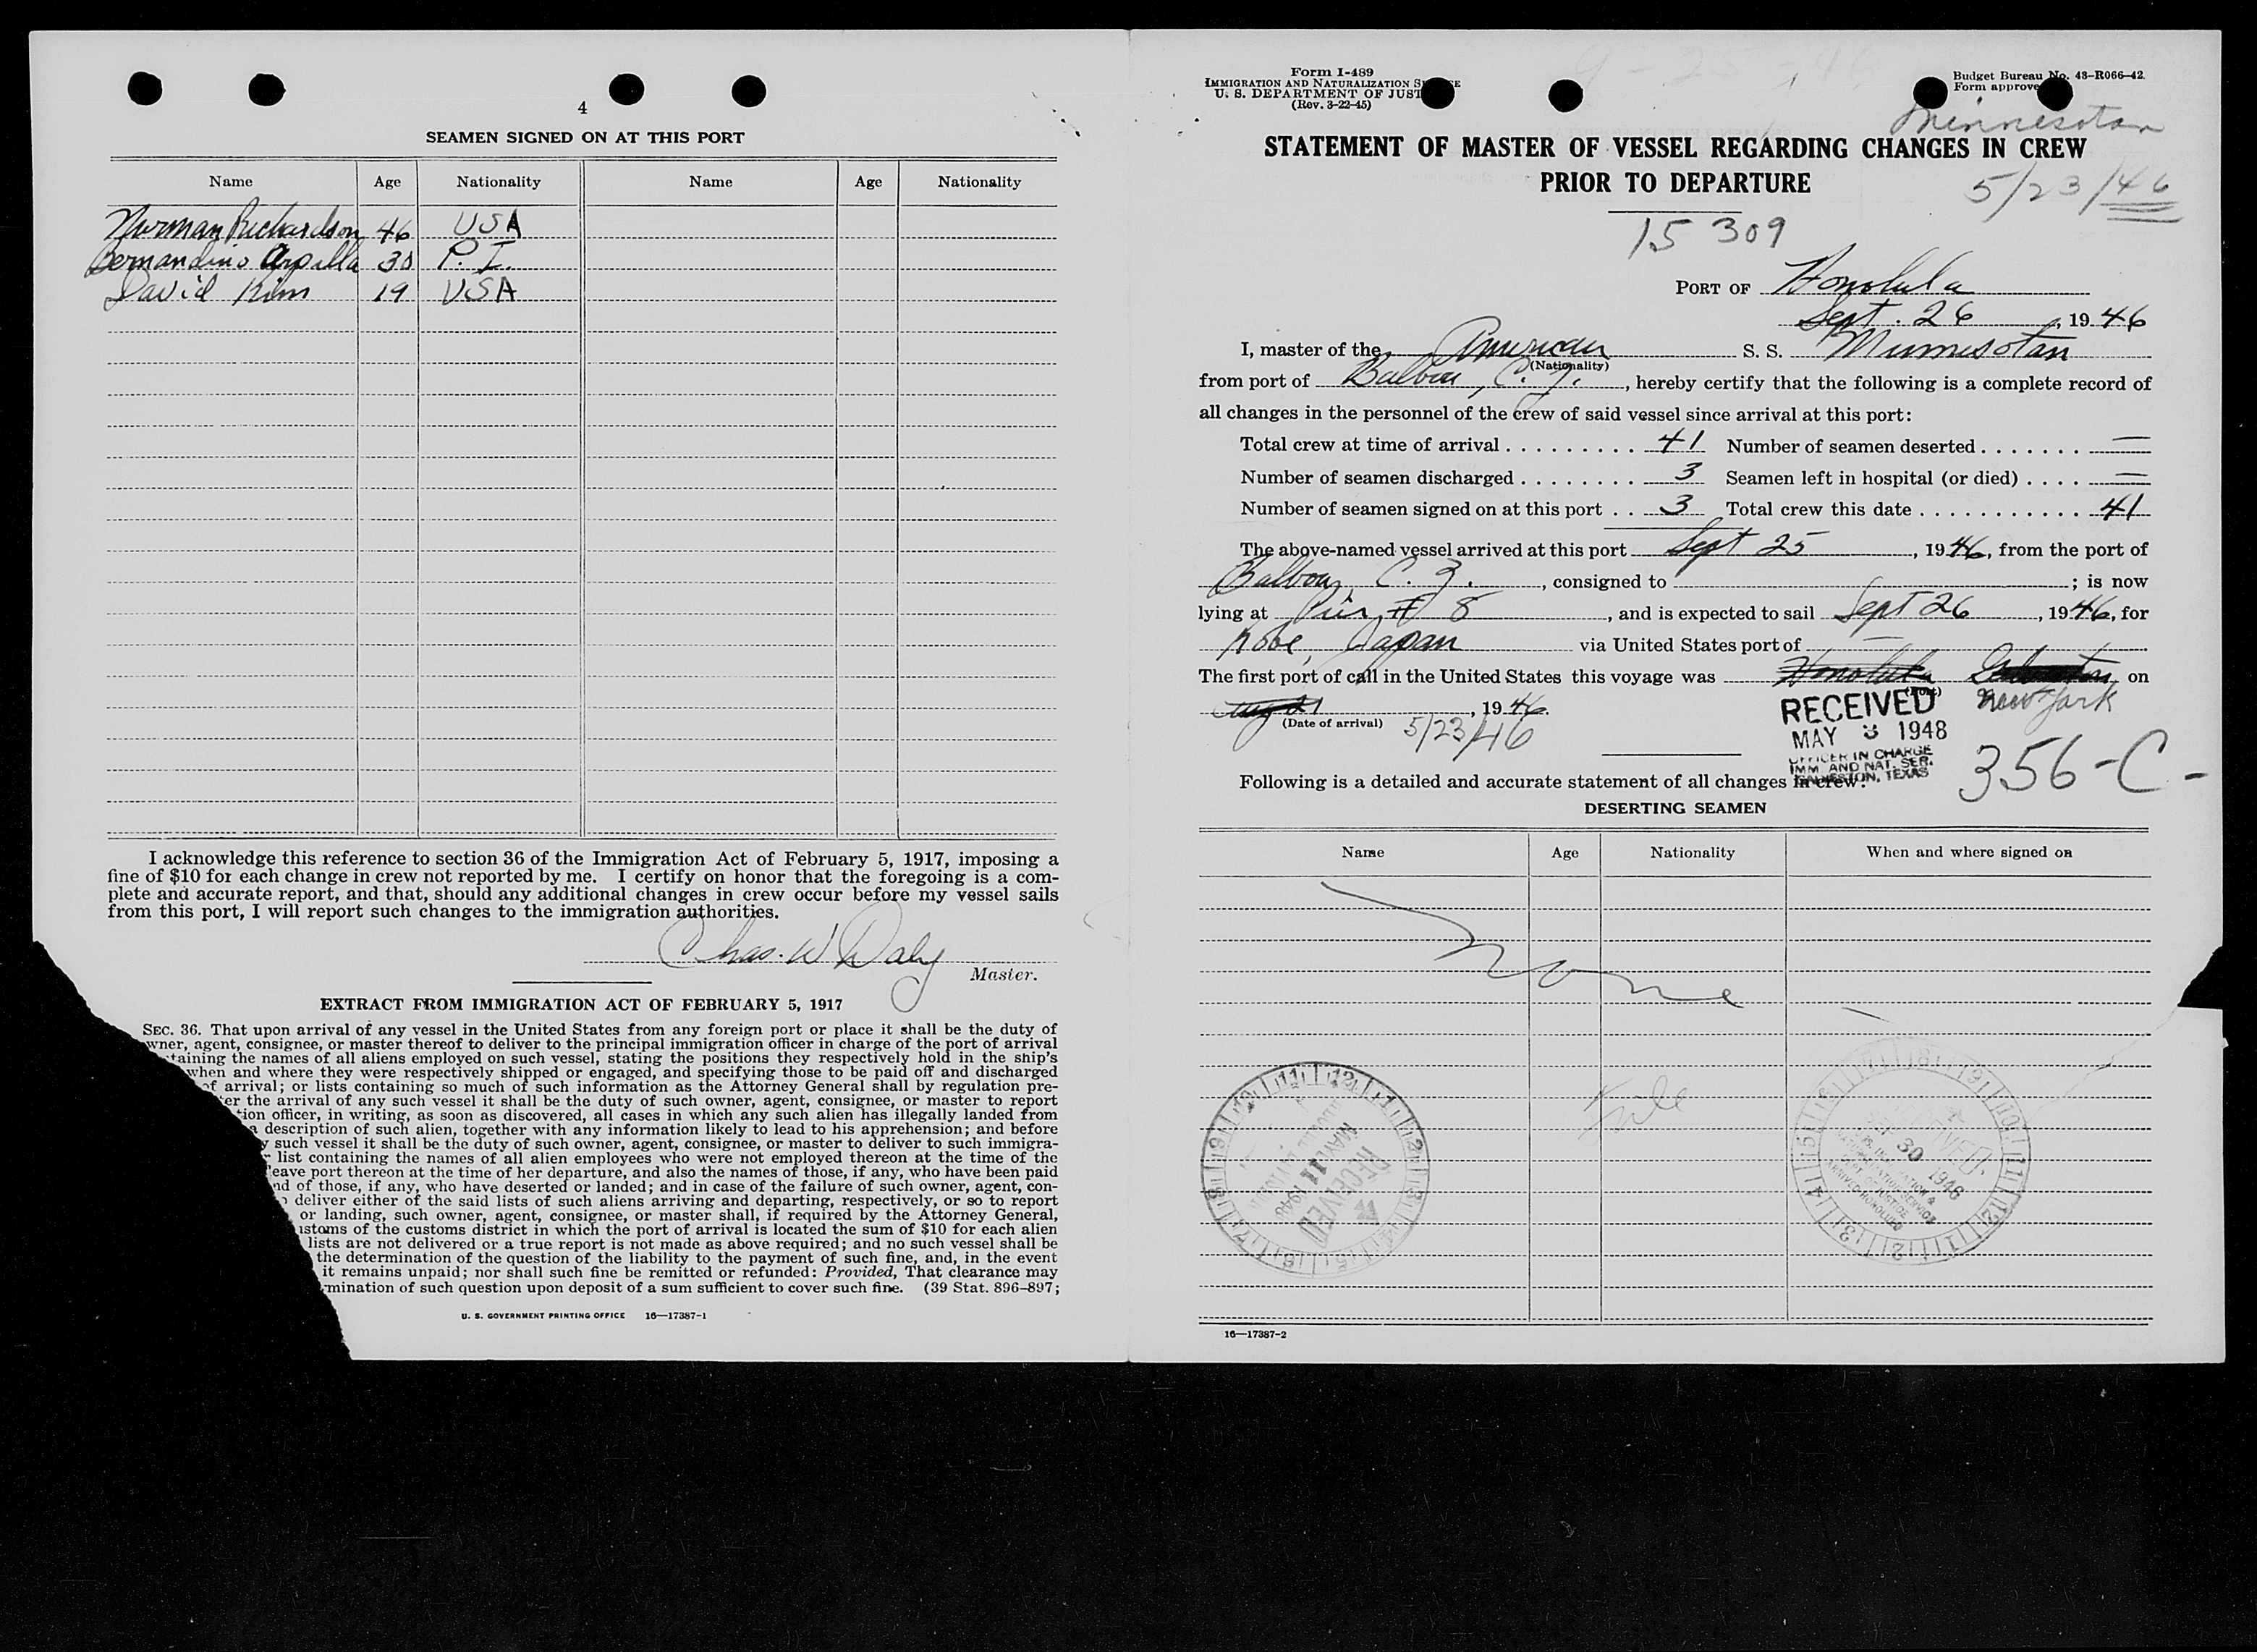 4
SEAMEN SIGNED ON AT THIS PORT
Name Age Nationality Name Age Nationality
Norman Richardson 46 USA
Bernandino Arpilla 30 P. I.
David Kim 19 USA
I acknowledge this reference to section 36 of the Immigration Act of February 5, 1917, imposing a
fine of $10 for each change in crew not reported by me. I certify on honor that the foregoing is a com-
plete and accurate report, and that, should any additional changes in crew occur before my vessel sails
from this port, I will report such changes to the immigration authorities.
Chas. W Daly
Master.
EXTRACT FROM IMMIGRATION ACT OF FEBRUARY 5, 1917
SEC. 36. That upon arrival of any vessel in the United States from any foreign port or place it shall be the duty of
wner, agent, consignee, or master thereof to deliver to the principal immigration officer in charge of the port of arrival
taining the names of all aliens employed on such vessel, stating the positions they respectively hold in the ship's
when and where they were respectively shipped or engaged, and specifying those to be paid off and discharged
of arrival; or lists containing so much of such information as the Attorney General shall by regulation pre-
er the arrival of any such vessel it shall be the duty of such owner, agent, consignee, or master to report
tion officer, in writing, as soon as discovered, all cases in which any such alien has illegally landed from
a description of such alien, together with any information likely to lead to his apprehension; and before
y such vessel it shall be the duty of such owner, agent, consignee, or master to deliver to such immigra-
list containing the names of all alien employees who were not employed thereon at the time of the
leave port thereon at the time of her departure, and also the names of those, if any, who have been paid
nd of those, if any, who have deserted or landed; and in case of the failure of such owner, agent, con-
deliver either of the said lists of such aliens arriving and departing, respectively, or so to report
or landing, such owner, agent, consignee, or master shall, if required by the Attorney General,
ustoms of the customs district in which the port of arrival is located the sum of $10 for each alien
lists are not delivered or a true report is not made as above required; and no such vessel shall be
the determination of the question of the liability to the payment of such fine, and, in the event
it remains unpaid; nor shall such fine be remitted or refunded: Provided, That clearance may
mination of such question upon deposit of a sum sufficient to cover such fine. (39 Stat. 896–897;
U. S. GOVERNMENT PRINTING OFFICE 16—17387-1
Form I-489
IMMIGRATION AND NATURALIZATION S E
U. S. DEPARTMENT OF JUST
(Rev. 3-22-45)
Budget Bureau No. 43-R066-42.
Form approve
Minnesotan
STATEMENT OF MASTER OF VESSEL REGARDING CHANGES IN CREW
PRIOR TO DEPARTURE
5/23/46
15 309
PORT OF Honolulu
Sept. 26, 1946
I, master of the American S. S. Minnesotan
(Nationality)
from port of Balboa, C. Z., hereby certify that the following is a complete record of
all changes in the personnel of the crew of said vessel since arrival at this port:
Total crew at time of arrival 41 Number of seamen deserted —
Number of seamen discharged 3 Seamen left in hospital (or died) —
Number of seamen signed on at this port 3 Total crew this date 41
The above-named vessel arrived at this port Sept 25, 1946, from the port of
Balboa, C. Z., consigned to ; is now
lying at Pier # 8, and is expected to sail Sept 26, 1946, for
Kobe, Japan via United States port of —
The first port of call in the United States this voyage was Honolulu Galveston on
New York
Aug 21, 1946.
(Date of arrival) 5/23/46
RECEIVED
MAY 3 1948
OFFICER IN CHARGE
IMM AND NAT. SER.
GALVESTON, TEXAS
356-C-
Following is a detailed and accurate statement of all changes in crew:
DESERTING SEAMEN
Name Age Nationality When and where signed on
None
File
RECEIVED
MAY 11
30 1946
16—17387-2